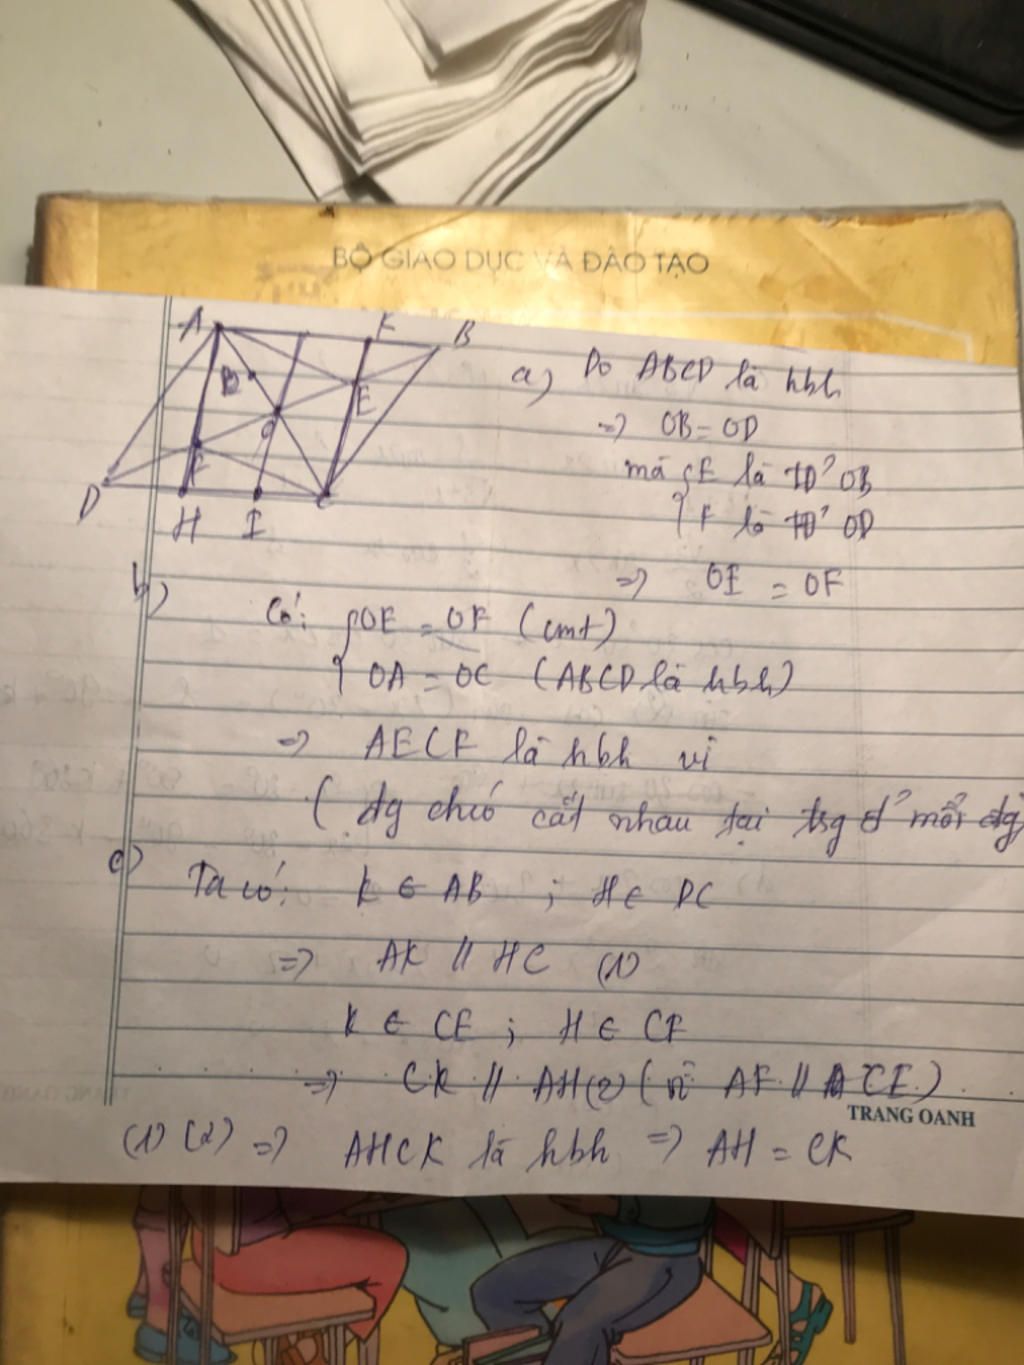 BỘ GIAO DỤC VÀ ĐÀO TẠO
A K B
E
O
F
D H I C
a) Do ABCD là hbh
=> OB = OD
mà { E là TĐ' OB
F là TĐ' OD
=> OE = OF
b)
Có: { OE = OF (cmt)
OA = OC (ABCD là hbh)
=> AECF là hbh vì
( đg chéo cắt nhau tại trg đ' mỗi đg
c)
Ta có: K ∈ AB ; H ∈ DC
=> AK // HC (1)
K ∈ CE ; H ∈ CF
=> CK // AH (2) ( vì AF // CE )
TRANG OANH
(1) (2) => AHCK là hbh => AH = CK